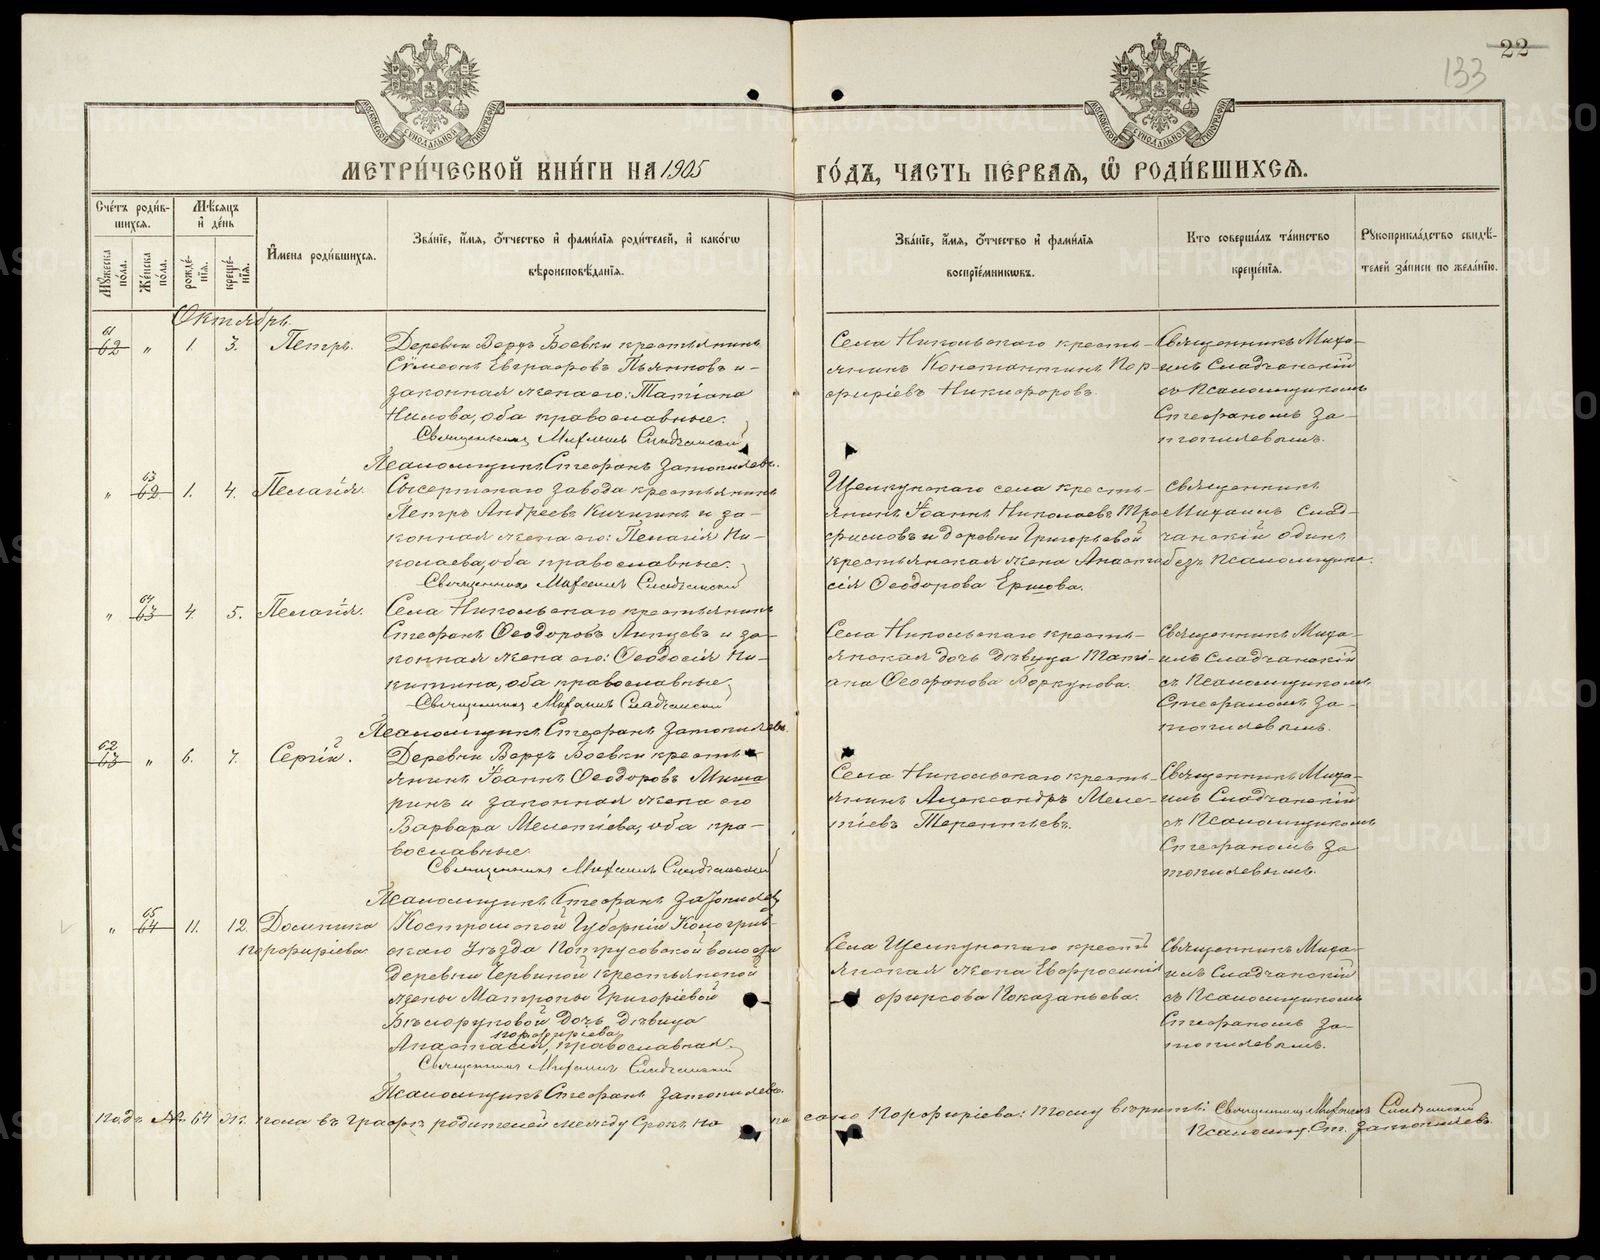 22
133
МЕТРИ́ЧЕСКОЙ КНИ́ГИ НА 1905 ГО́ДЪ, ЧАСТЬ ПЕ́РВАЯ, Ѽ РОДИ́ВШИХСЯ.
Сче́тъ роди́в-
шихся.
Му́жеска по́ла.
Же́нска по́ла.
Мѣ́сяцъ и де́нь
рожде́-
нїя.
креще́-
нїя.
И҆мена роди́вшихся.
Зва́нїе, и҆́мя, ѻ҆́тчество и҆ фами́лїя роди́телей, и҆ како́гѡ
вѣроисповѣ́данїя.
Зва́нїе, и҆́мя, ѻ҆́тчество и҆ фами́лїя
воспрїе́мникѡвъ.
Кто соверша́лъ та́инство
креще́нїя.
Рꙋкоприкла́дство свидѣ́-
телей за́писи по жела́нїю.
Октябрь.
61
62 „ 1. 3. Петръ.
Деревни Верхъ Боевки крестьянинъ
Сѵмеонъ Евграфовъ Пьянковъ и
законная жена его: Татіана
Нилова, оба православные.
Священникъ Михаилъ Сладчанскій
Псаломщикъ Стефанъ Затопляевъ.
Села Никольскаго кресть-
янинъ Константинъ Пор-
фиріевъ Никифоровъ.
Священникъ Миха-
илъ Сладчанскій
съ Псаломщикомъ
Стефаномъ За-
топляевымъ.
63
„ 62 1. 4. Пелагія.
Сысертскаго завода крестьянинъ
Петръ Андреевъ Кичигинъ и за-
конная жена его: Пелагія Ни-
колаева, оба православные.
Священникъ Михаилъ Сладчанскій
Щелкунскаго села кресть-
янинъ Іоаннъ Николаевъ Тро-
фимовъ и деревни Григорьевой
крестьянская жена Анаста-
сія Ѳеодорова Ершова.
Священникъ
Михаилъ Слад-
чанскій одинъ
безъ Псаломщика.
64
„ 63 4. 5. Пелагія.
Села Никольскаго крестьянинъ
Стефанъ Ѳеодоровъ и за-
конная жена его: Ѳеодосія Ни-
китина, оба православные.
Священникъ Михаилъ Сладчанскій
Псаломщикъ Стефанъ Затопляевъ.
Села Никольскаго кресть-
янская дочь дѣвица Тати-
ана Ѳеофанова Боркунова.
Священникъ Миха-
илъ Сладчанскій
съ Псаломщикомъ
Стефаномъ За-
топляевымъ.
62
63 „ 6. 7. Сергій.
Деревни Верхъ Боевки кресть-
янинъ Іоаннъ Ѳеодоровъ Миша-
ринъ и законная жена его
Варвара Мелетіева, оба пра-
вославные.
Священникъ Михаилъ Сладчанскій
Псаломщикъ Стефанъ Затопляевъ
Села Никольскаго кресть-
янинъ Александръ Меле-
тіевъ Терентьевъ.
Священникъ Миха-
илъ Сладчанскій
съ Псаломщикомъ
Стефаномъ За
топляевымъ.
65
„ 64 11. 12. Домника
Порфиріева.
Костромской Губерніи Кологрив-
скаго Уѣзда волости
Деревни крестьянской
жены Матроны Григоріевой
Бѣлоруковой дочь дѣвица
Порфиріева
Анастасія, православная.
Священникъ Михаилъ Сладчанскій
Псаломщикъ Стефанъ Затопляевъ.
Села Щелкунскаго кресть-
янская жена Евфросинія
Фирсова Показаньева.
Священникъ Миха-
илъ Сладчанскій
съ Псаломщикомъ
Стефаномъ За-
топляевымъ.
Подъ № 64 ж. пола въ графѣ родителей между строкъ написано Порфиріева: тому вѣрить: Священникъ Михаилъ Сладчанскій
Псаломщ. Ст. Затопляевъ.
METRIKI.GASO-URAL.RU